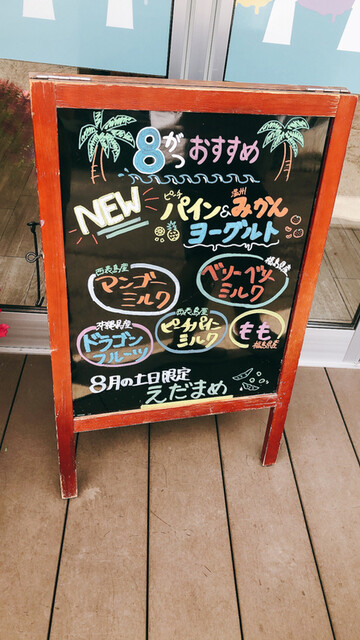 8がつおすすめ
NEW
ピーチ 温州
パイン&みかん
ヨーグルト
西表島産
マンゴー
ミルク
福島県産
ベリーベリー
ミルク
沖縄県産
ドラゴン
フルーツ
西表島産
ピーチパイン
ミルク
もも
福島県産
8月の土日限定
えだまめ